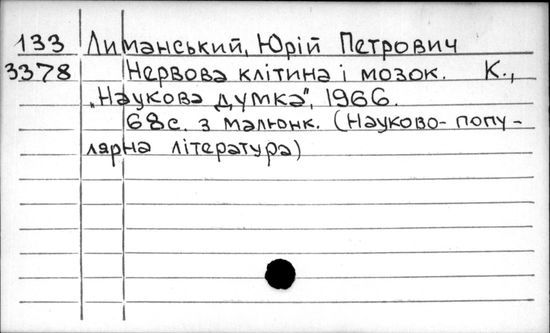 133 Лиманський, Юрій Петрович
3378 Нервова клітина і мозок. К.,
„Наукова думка", 1966.
68с. з малюнк. (Науково-попу-
лярна література)